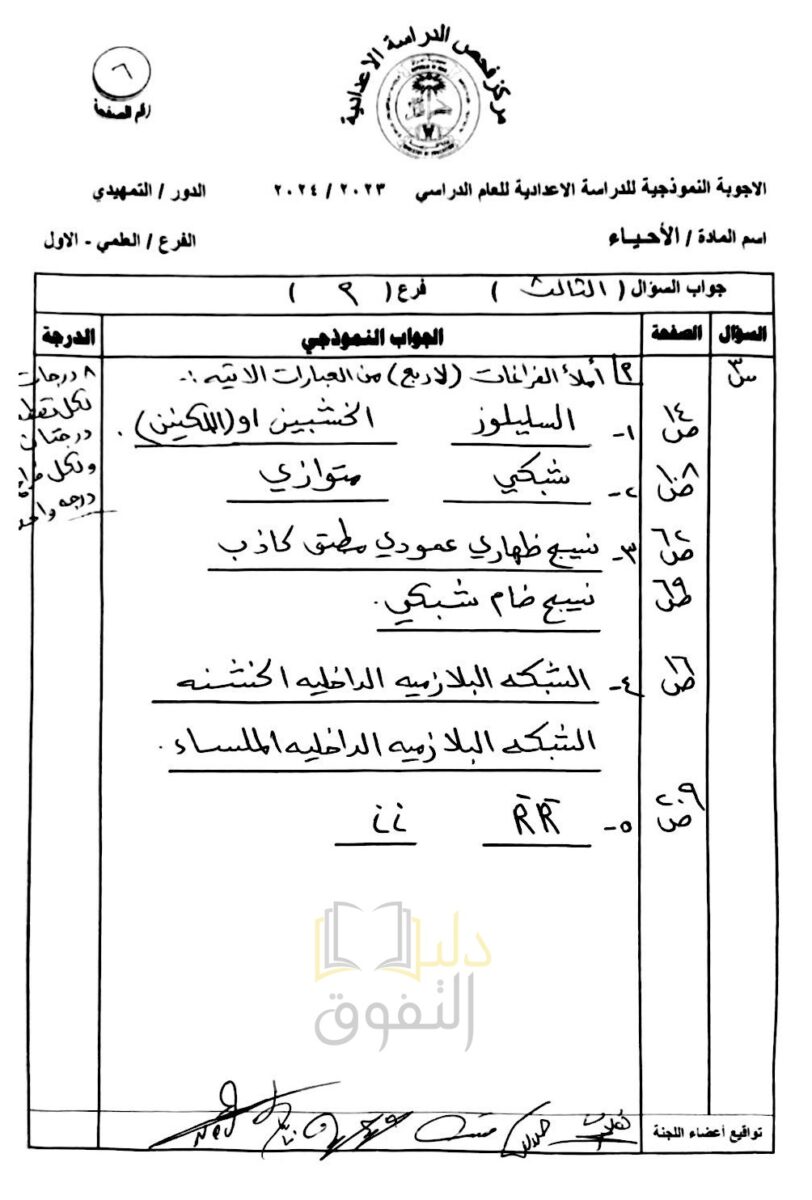 مركز فحص الدراسة الاعدادية
٦
رقم الصفحة
الاجوبة النموذجية للدراسة الاعدادية للعام الدراسي ٢٠٢٣ / ٢٠٢٤ الدور / التمهيدي
اسم المادة / الأحياء الفرع / العلمي - الاول
جواب السؤال ( الثالث ) فرع ( )
السؤال الصفحة الجواب النموذجي الدرجة
س٣ أملأ الفراغات (لأربع) من العبارات الاتيه :- ٨ درجات
لكل نقطة
درجتان
ولكل فراغ
درجه واحدة
ص١٤ ١- السليلوز الخشبين او (اللكنين).
ص١٠٨ ٢- شبكي متوازي
ص٦٢ ٣- نسيج ظهاري عمودي مطبق كاذب
ص٦٩ نسيج ضام شبكي.
ص١٦ ٤- الشبكه البلازميه الداخليه الخشنه
الشبكه البلازميه الداخليه الملساء.
ص٢٠٩ ٥- R̄R̄ ii
دليل
التفوق
تواقيع أعضاء اللجنة